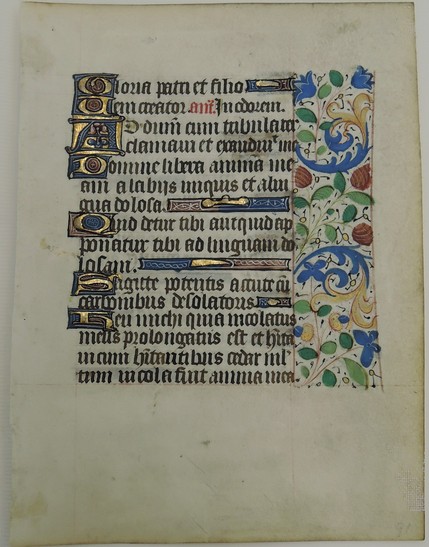 Gloria patri et filio
Veni creator. añ. In odorem.
Ad dñum cum tribularer
clamavi et exaudivit me
Domine libera anima me
am a labiis iniquis et a lin
gua dolosa.
Quid detur tibi aut quid ap
ponatur tibi ad linguam do
losam.
Sagitte potentis acute cū
carbonibus desolatoriis
Heu michi quia incolatus
meus prolongatus est et hīta
vi cum hītantibus cedar ml
tum incola fuit anima mea